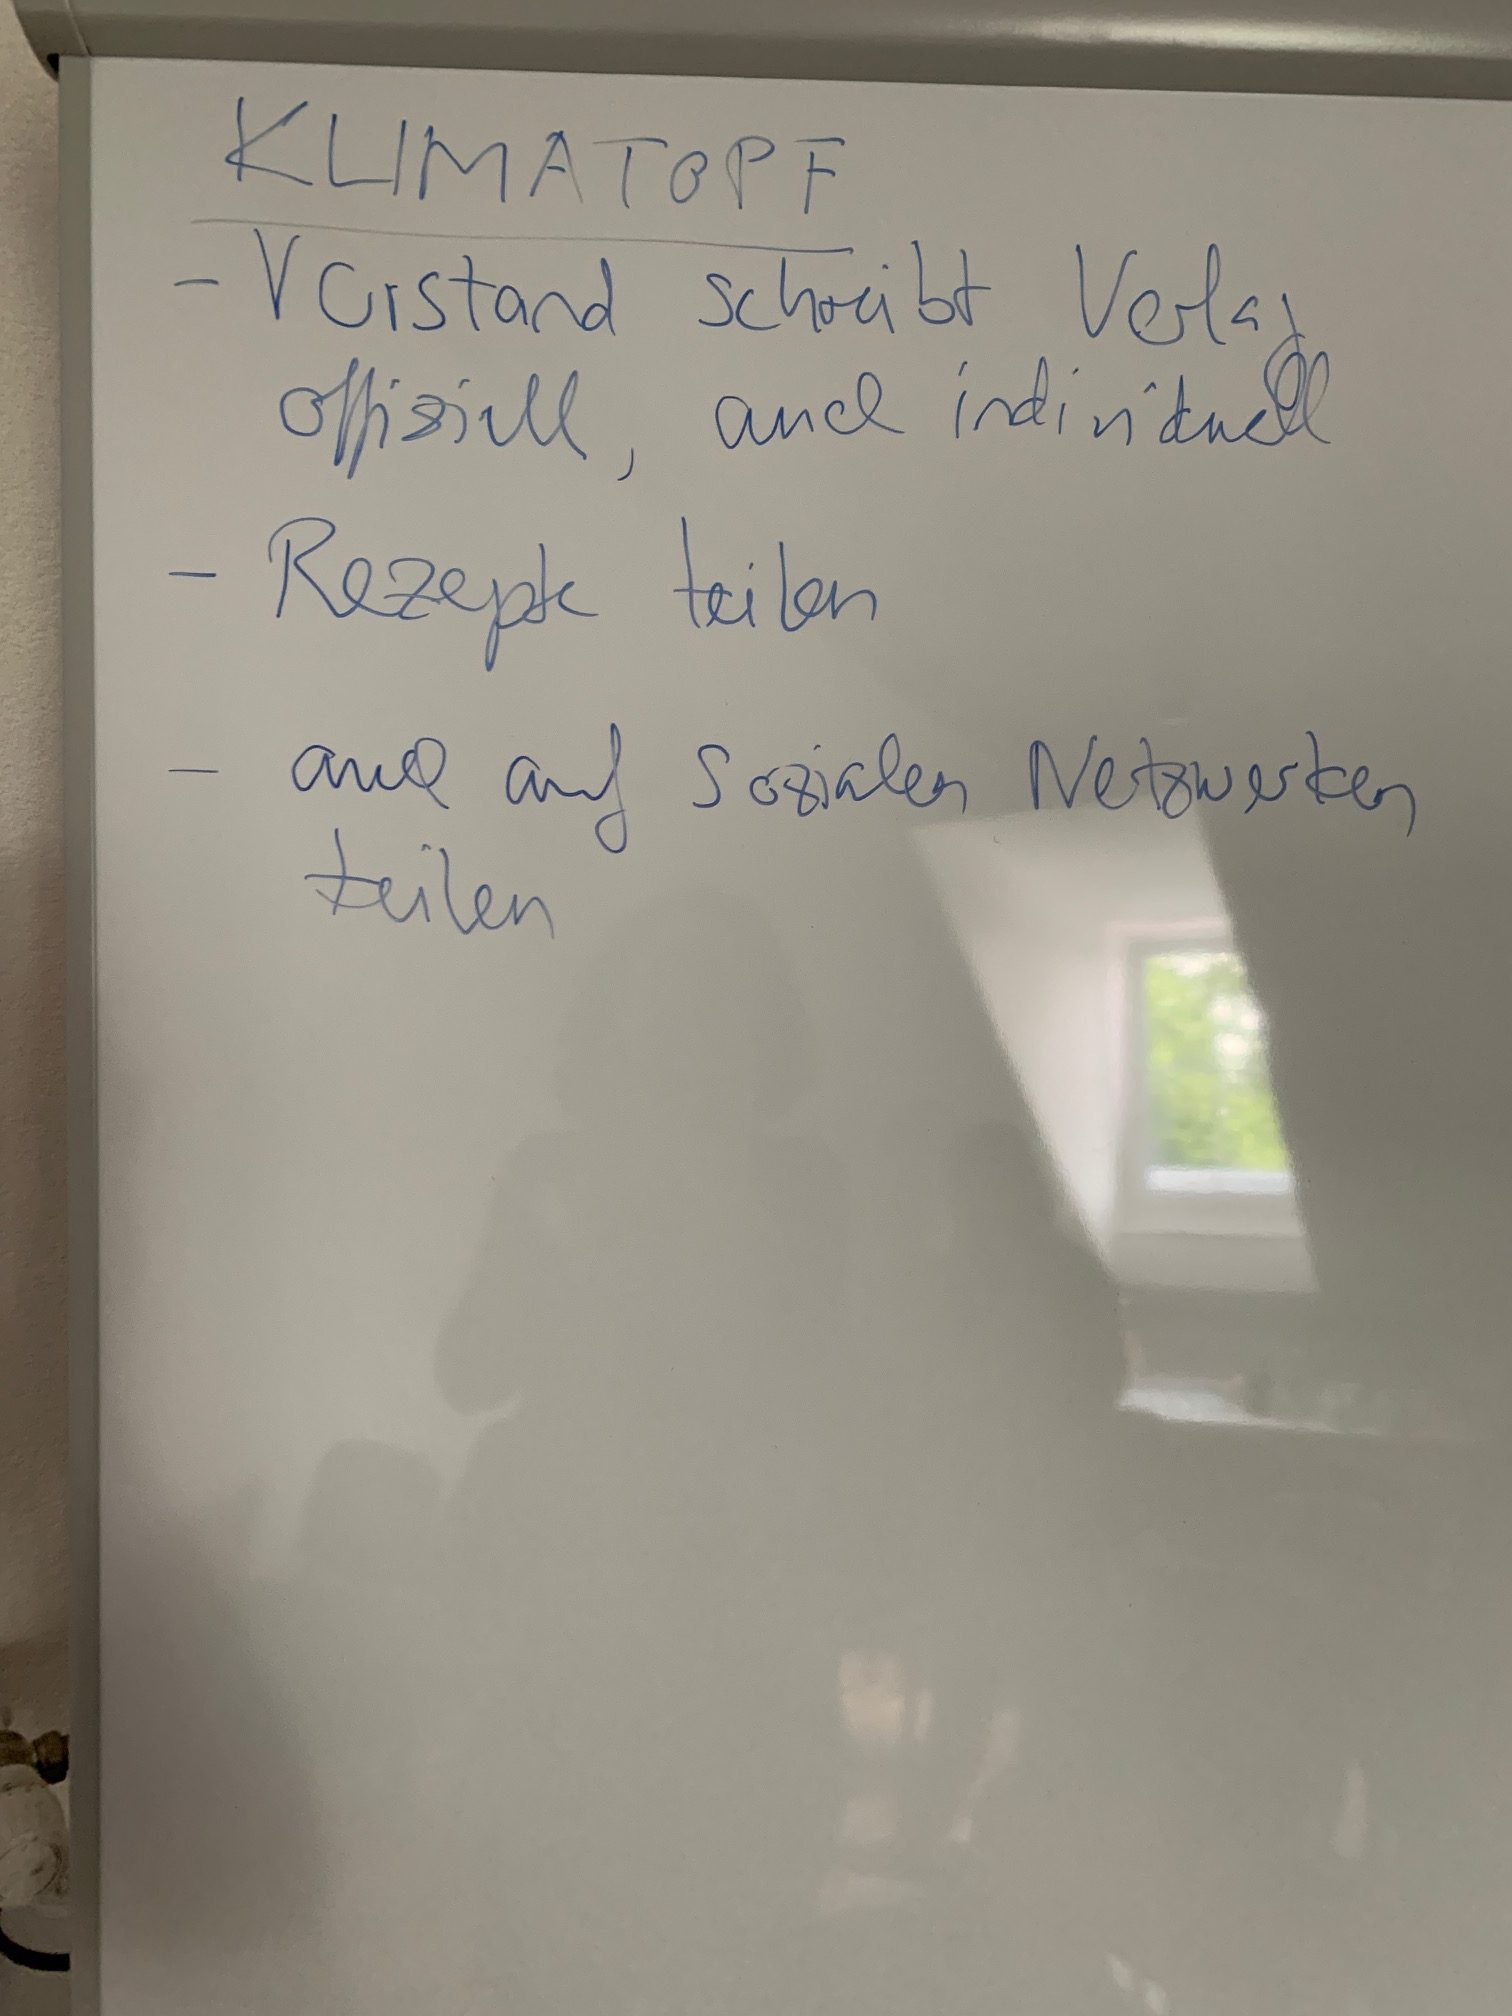 KLIMATOPF
- Vorstand schreibt Verlag
offiziell, auch individuell
- Rezepte teilen
- auch auf sozialen Netzwerken
teilen